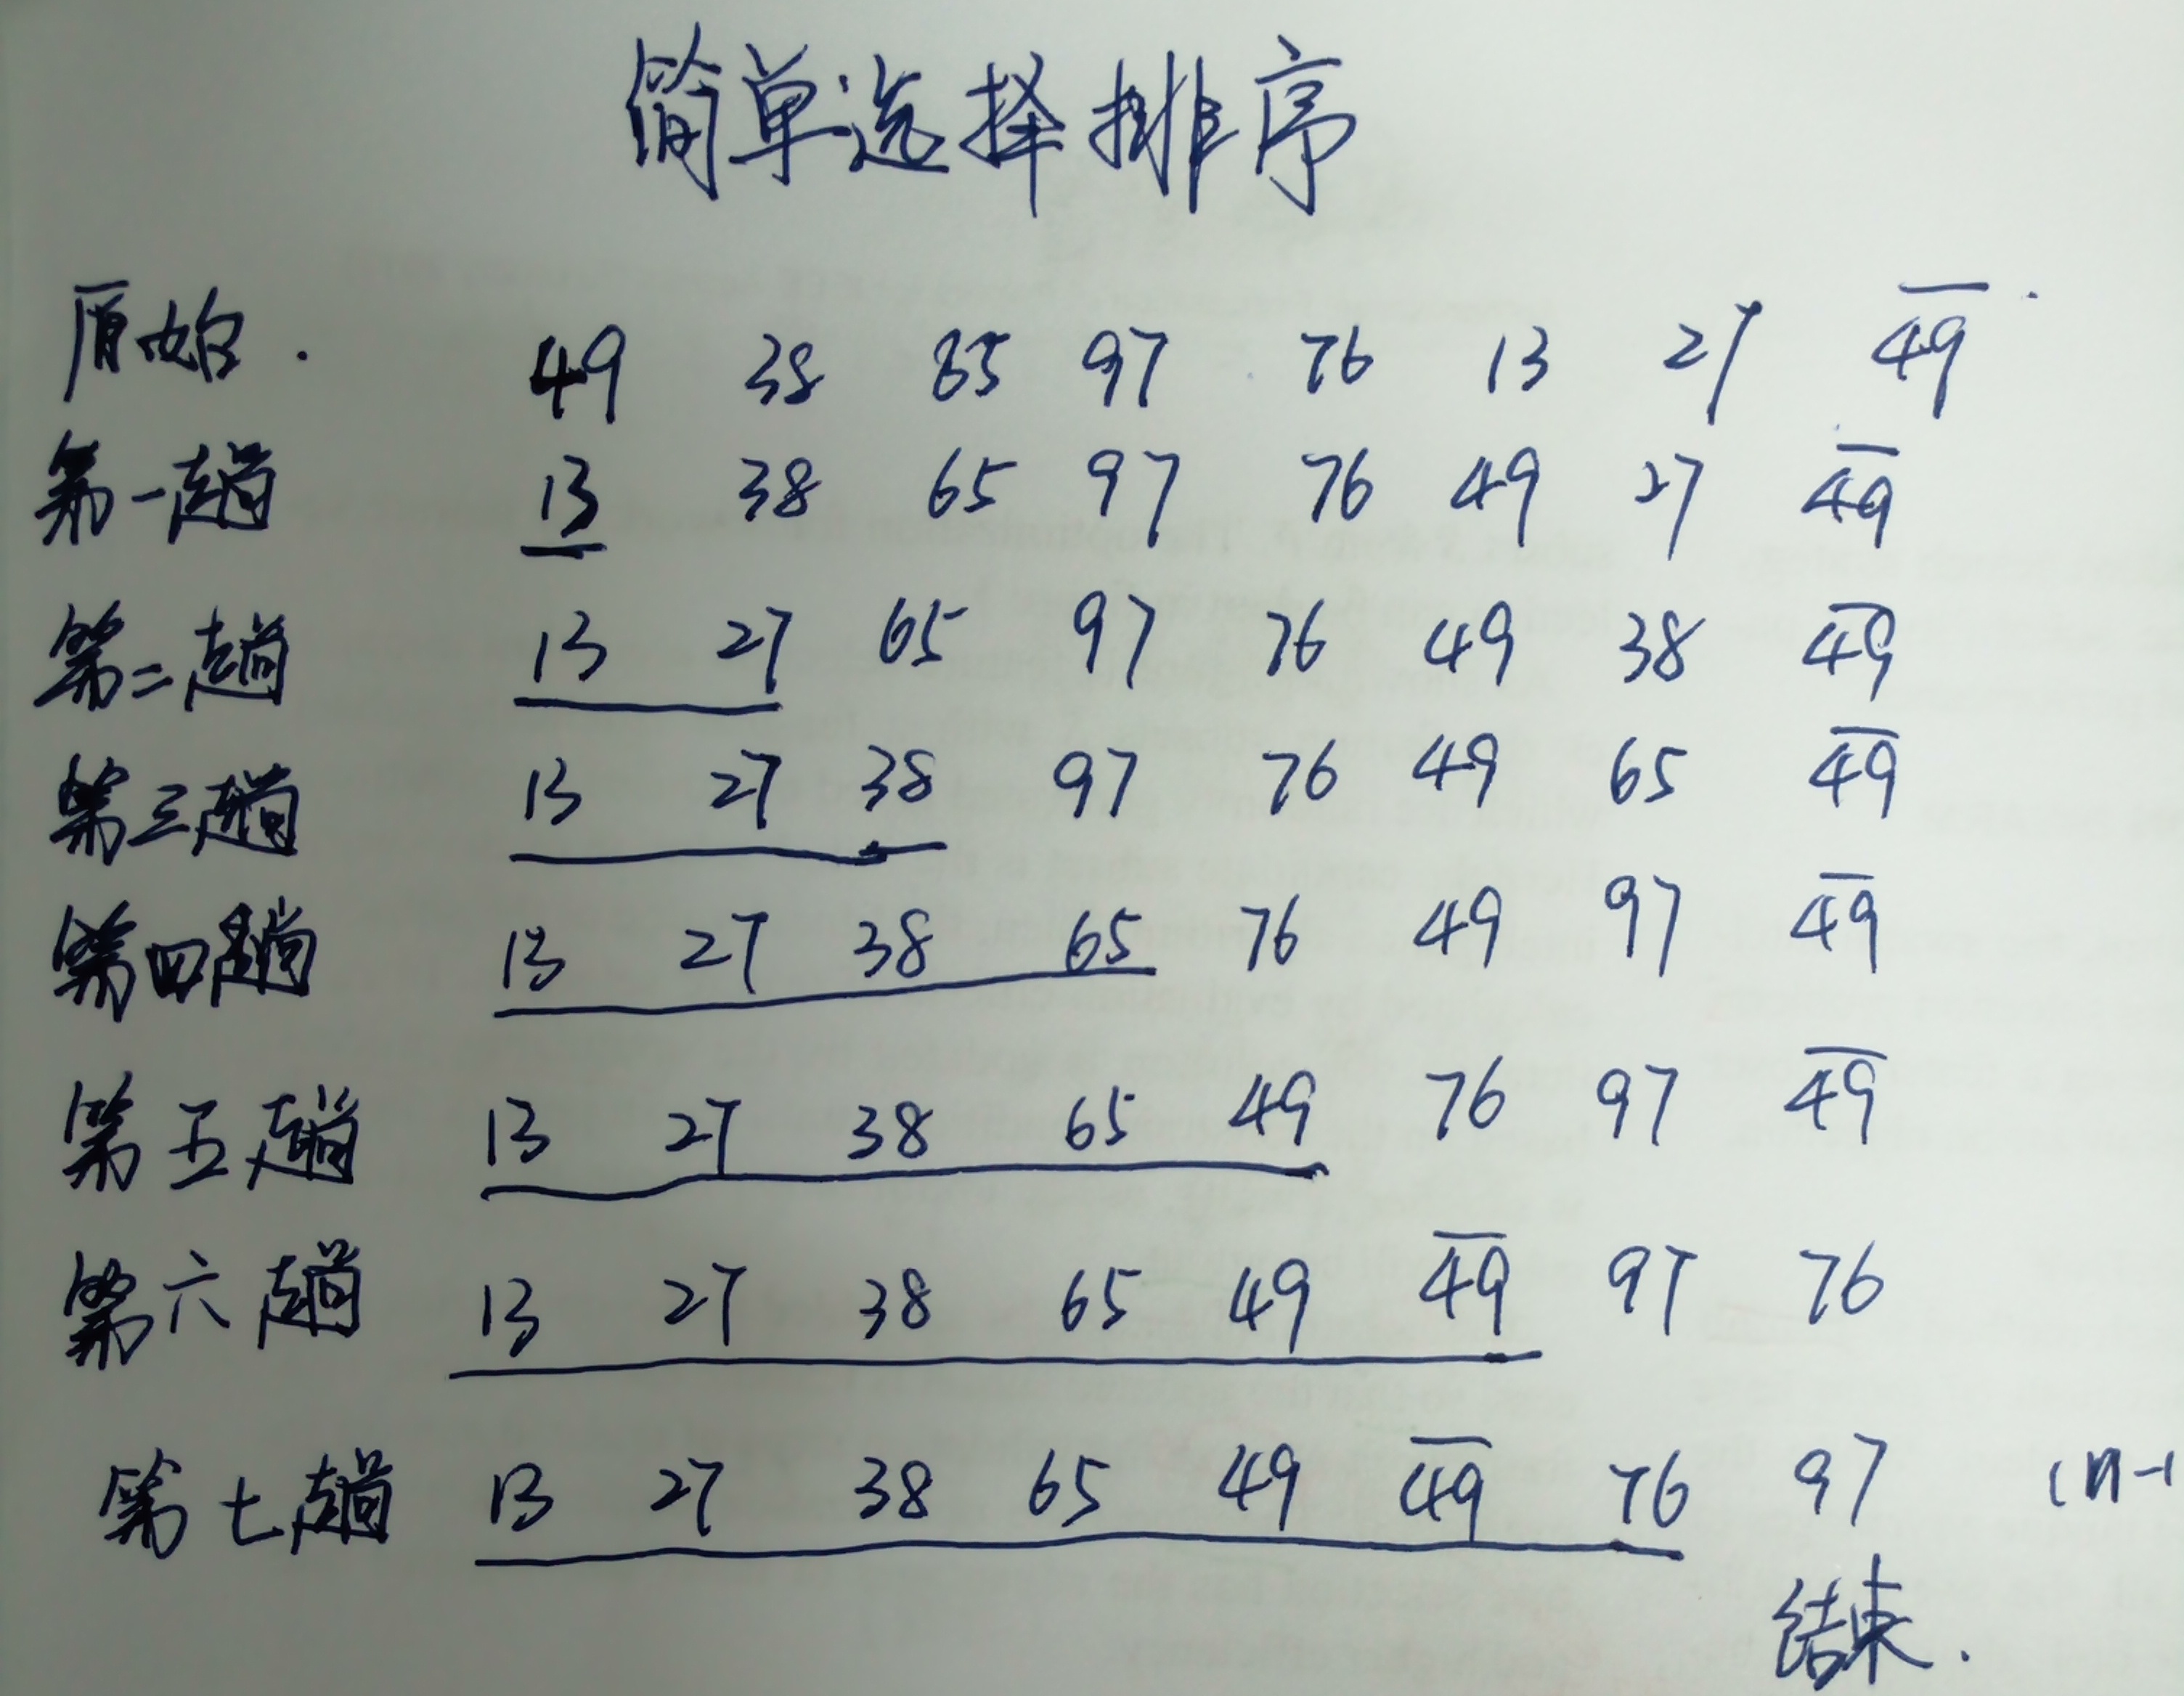 简单选择排序
原始. 49 38 65 97 76 13 27 4̅9̅.
第一趟 13 38 65 97 76 49 27 4̅9̅
第二趟 13 27 65 97 76 49 38 4̅9̅
第三趟 13 27 38 97 76 49 65 4̅9̅
第四趟 13 27 38 65 76 49 97 4̅9̅
第五趟 13 27 38 65 49 76 97 4̅9̅
第六趟 13 27 38 65 49 4̅9̅ 97 76
第七趟 13 27 38 65 49 4̅9̅ 76 97 (n-1
结束.